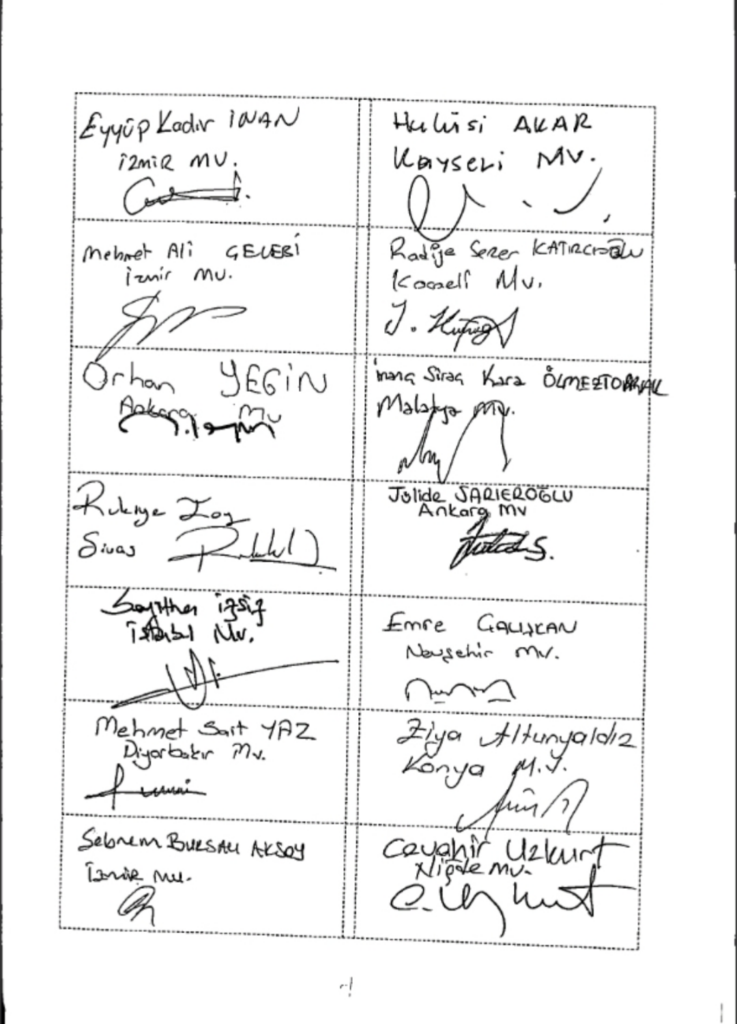 Eyyüp Kadir İNAN
İZMİR MV.
Hulûsi AKAR
Kayseri MV.
Mehmet Ali ÇELEBİ
İzmir MV.
Radiye Sezer KATIRCIOĞLU
Kocaeli Mv.
Orhan YEGİN
Ankara Mv
İnanç Siraç Kara ÖLMEZTOPRAK
Malatya Mv.
Rukiye Toy
Sivas
Jülide SARIEROĞLU
Ankara Mv
İzsiz
İstanbul Mv.
Emre ÇALIŞKAN
Nevşehir Mv.
Mehmet Sait YAZ
Diyarbakır Mv.
Ziya Altunyaldız
Konya M.V.
Şebnem BURSALI AKSOY
İzmir Mv.
Cevahir Uzkurt
Niğde Mv.
C. Uzkurt